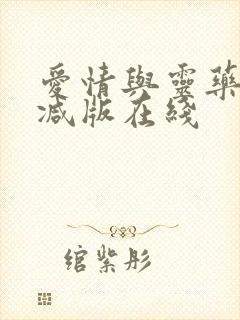 愛情與靈藥
減版在綫
綰紫彤